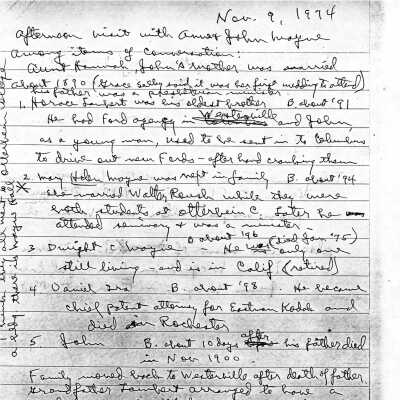 Nov. 9, 1974
Afternoon visit with Anne & John Mayne
Among items of conversation:
Aunt Hannah, John's mother was married
about 1890 (Grace Sally said it was her first wedding to attend)
his father was a Presbyterian minister
1. Horace Lambert was his oldest brother B. about '91
He had Ford agency in Westerville and John,
as a young man, used to be sent in to Columbus
to drive out new Fords - after hand cranking them
2. Mary Helen Mayne was next in family B. about '94
she married Walter Roush while they were
both students at Otterbein C. Later he
attended seminary & was a minister -
B about '96 (died Jan '75)
3. Dwight C Mayne - He was only one
still living - and is in Calif (retired)
4. Daniel Ira B. about '98. He became
chief patent attorney for Eastman Kodak and
died in Rochester
5. John B. about 10 days after his father died
in Nov 1900.
Family moved back to Westerville after death of father.
Grandfather Lambert arranged to have a
they all met at Otterbein College
a bldg there is Mayne Hall